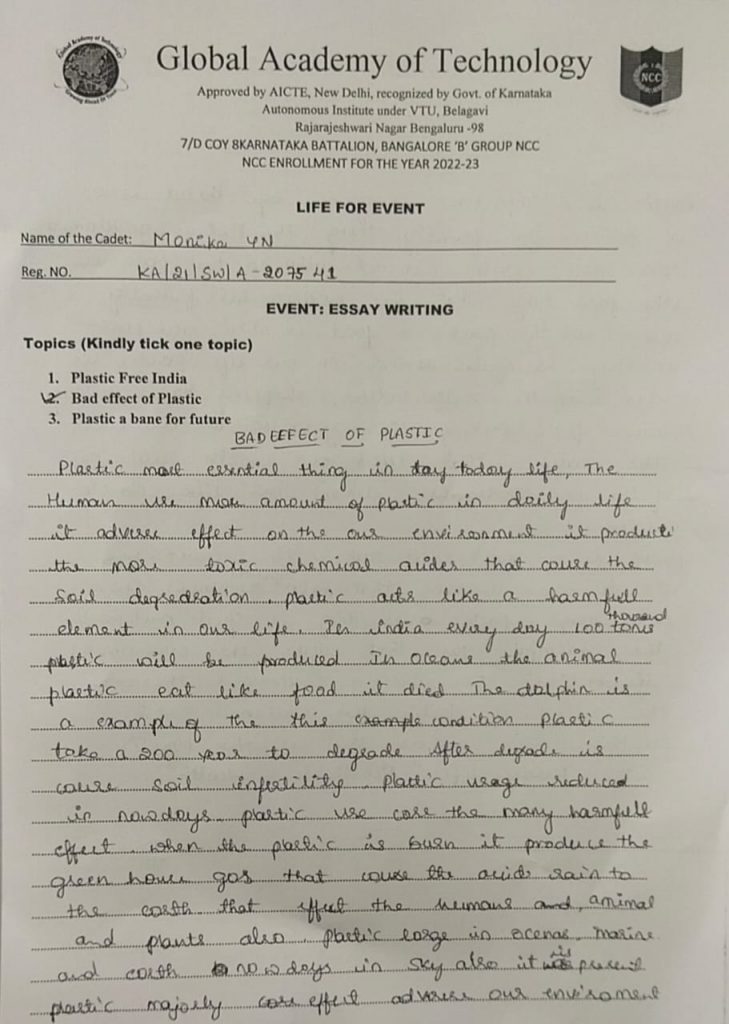 Global Academy of Technology
NCC
Approved by AICTE, New Delhi, recognized by Govt. of Karnataka
Autonomous Institute under VTU, Belagavi
Rajarajeshwari Nagar Bengaluru -98
7/D COY 8KARNATAKA BATTALION, BANGALORE 'B' GROUP NCC
NCC ENROLLMENT FOR THE YEAR 2022-23
LIFE FOR EVENT
Name of the Cadet: Monika YN
Reg. NO. KA/21/SW/A-207541
EVENT: ESSAY WRITING
Topics (Kindly tick one topic)
1. Plastic Free India
2. Bad effect of Plastic
3. Plastic a bane for future
BAD EEFECT OF PLASTIC
Plastic most essential thing in day today life, The
Human use more amount of plastic in daily life
it adverse effect on the our environment it products
the more toxic chemical acides that cause the
Soil degredration. plastic acts like a harmfull
element in our life. In India every day 100 thousand tons
plastic will be produced In Oceans the animal
plastic eat like food it died The dolphin is
a example of the this example condition Plastic
take a 200 year to degrade After degrade is
cause soil infertility. Plastic usage reduced
in nowdays. plastic use case the many harmfull
effect. when the plastic is burn it produce the
green house gas that cause the acid rain to
the earth that effect the humans and, animal
and plants also. plastic large in ocenas, marine
and earth nowdays in sky also it is present
plastic majorly case effect adverse our enviroment